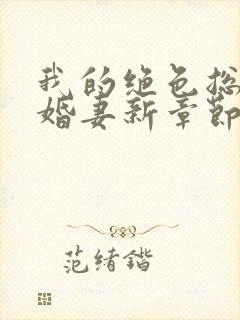 我的绝色总
婚妻新章节
范绪锴